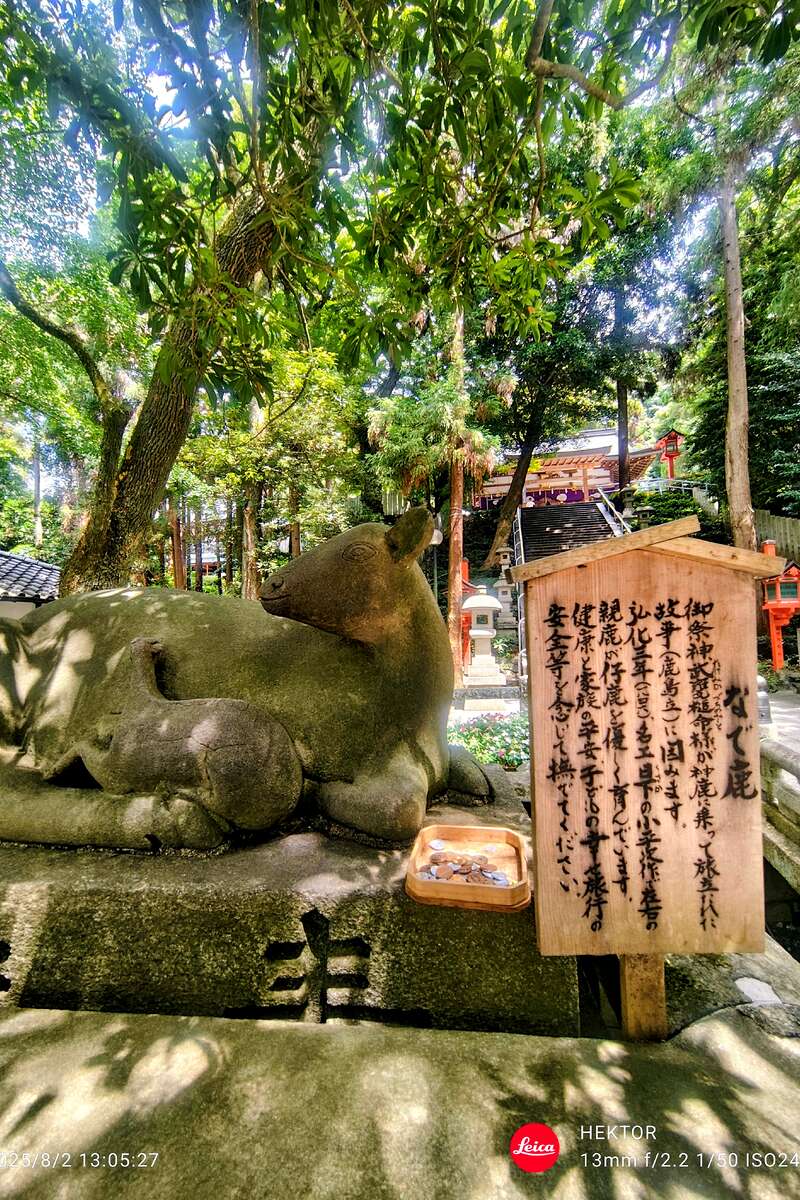 なで鹿
御祭神武甕槌命様が神鹿に乗って旅立たれた
故事(鹿島立)に因みます。
弘化三年 名工日下の小平次作 左右の
親鹿が仔鹿を優しく育んでいます。
健康と家族の平安 子どもの幸 旅行の
安全等を念じて撫でてください。
Leica
HEKTOR
025/8/2 13:05:27
13mm f/2.2 1/50 ISO24